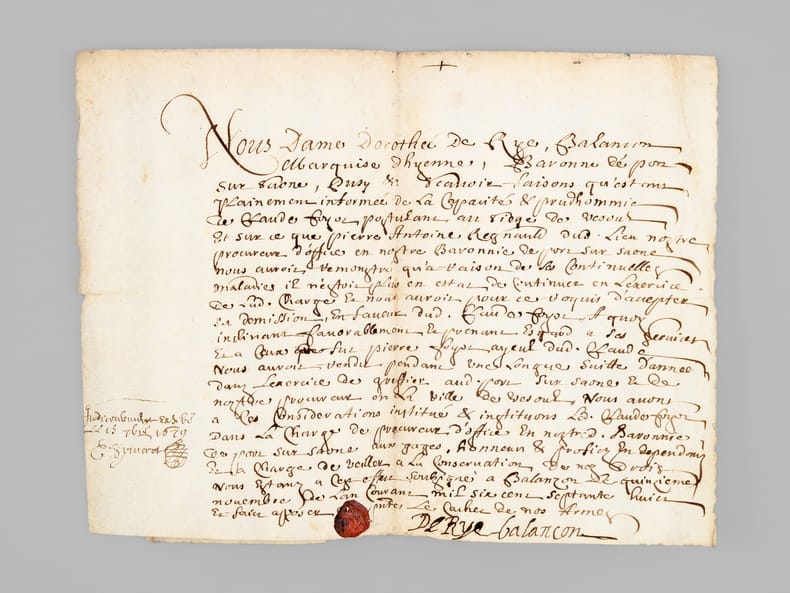 Nous Dame Dorothée De Rye, Balancon
Marquise dhyenne, Baronne de port
sur saone, & scavoir faisons qu'estant
plainement informée de la Capacité & prudhommie
de Claude foyot postulant au siège de vesoul
Et sur ce que pierre Antoine Regnauld dud. Lieu nostre
procureur d'office en nostre Baronnie de port sur saone
nous auroit remonstré qu'a raison de ses Continuelles
maladies il n'estoit plus en estat de Continuer en Lexercice
de Lad. Charge Et nous auroit pour ce requis d'accepter
sa demission, En faveur dud. Claude foyot, A quoy
inclinant favorablement Et prenant Esgard a ses services
Et a Ceux que fut pierre foyot ayeul dud. Claude
Nous auroit rendu pendant une Longue suitte d'année
dans Lexercice de greffier aud. port sur saone Et de
nostre procureur en La ville de vesoul, Nous avons
a Ces Considerations institué & instituons Led. Claude foyot
Dans La Charge de procureur d'office En nostred. Baronnie
de port sur saone aux gages, honneurs & profictz En dependans
Et a La Charge de veiller a La Conservation de nos Droits
Nous Estans a Cet effect soubsignée a Balançon Le quinzieme
novembre de Lan Courant mil six cent septante huict
Et faict apposer Le Cachet de nos Armes
De Rye balancon
Le 15 1679